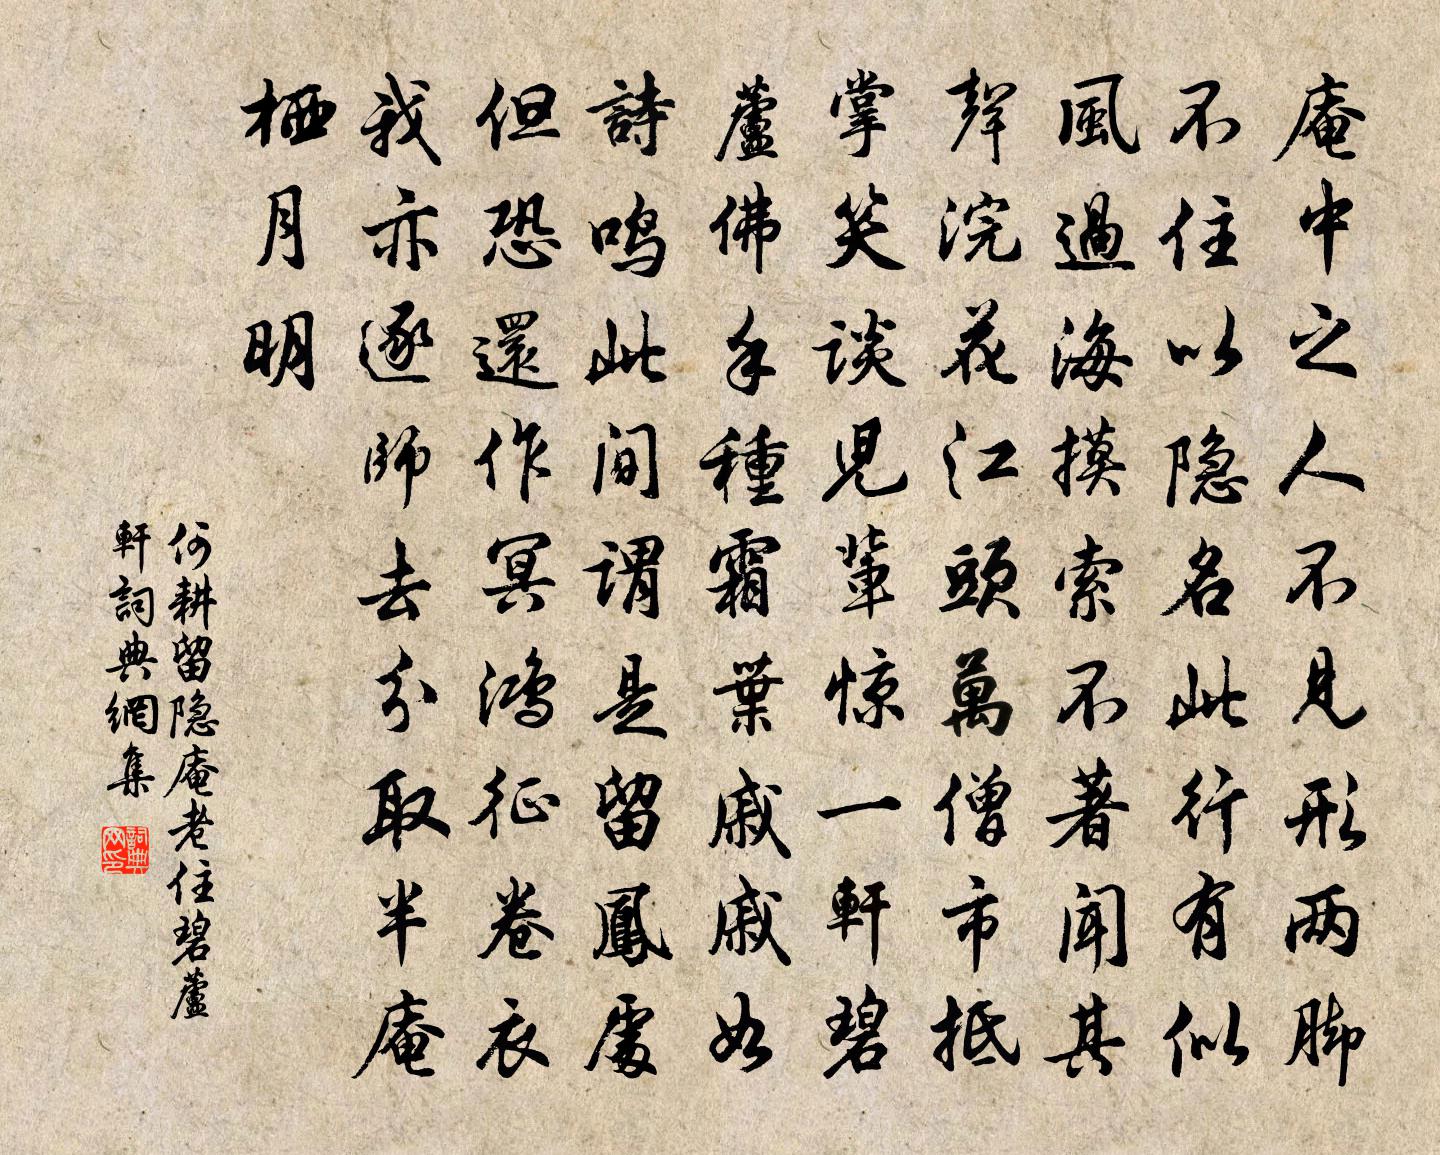 庵中之人不見形两脚
不住以隐名此行有似
風過海摸索不著聞其
聲浣花江頭萬僧市抵
掌笑談児輩惊一軒碧
蘆佛手種霜葉戚戚如
詩鳴此间謂是留鳳處
但恐還作冥鴻征卷衣
我亦逐師去分取半庵
栖月明
何耕留隐庵老住碧蘆
軒詞典網集
詞典网印